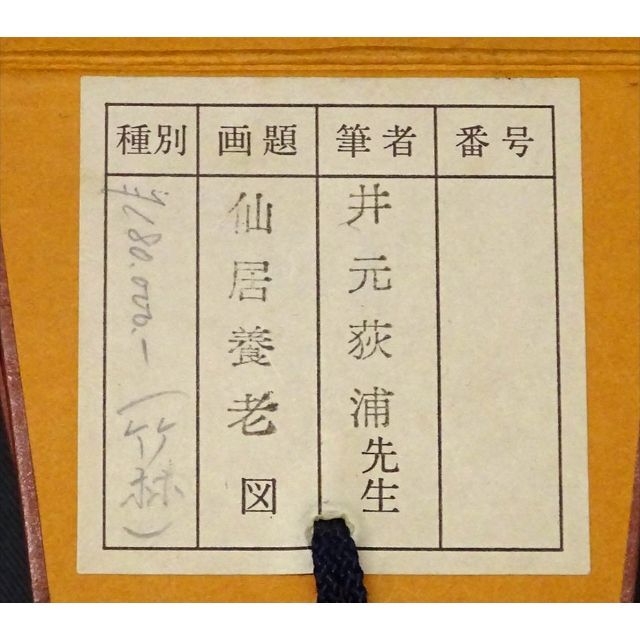 番号
筆者
井元荻浦先生
画題
仙居養老図
種別
¥180.000.-(竹林)